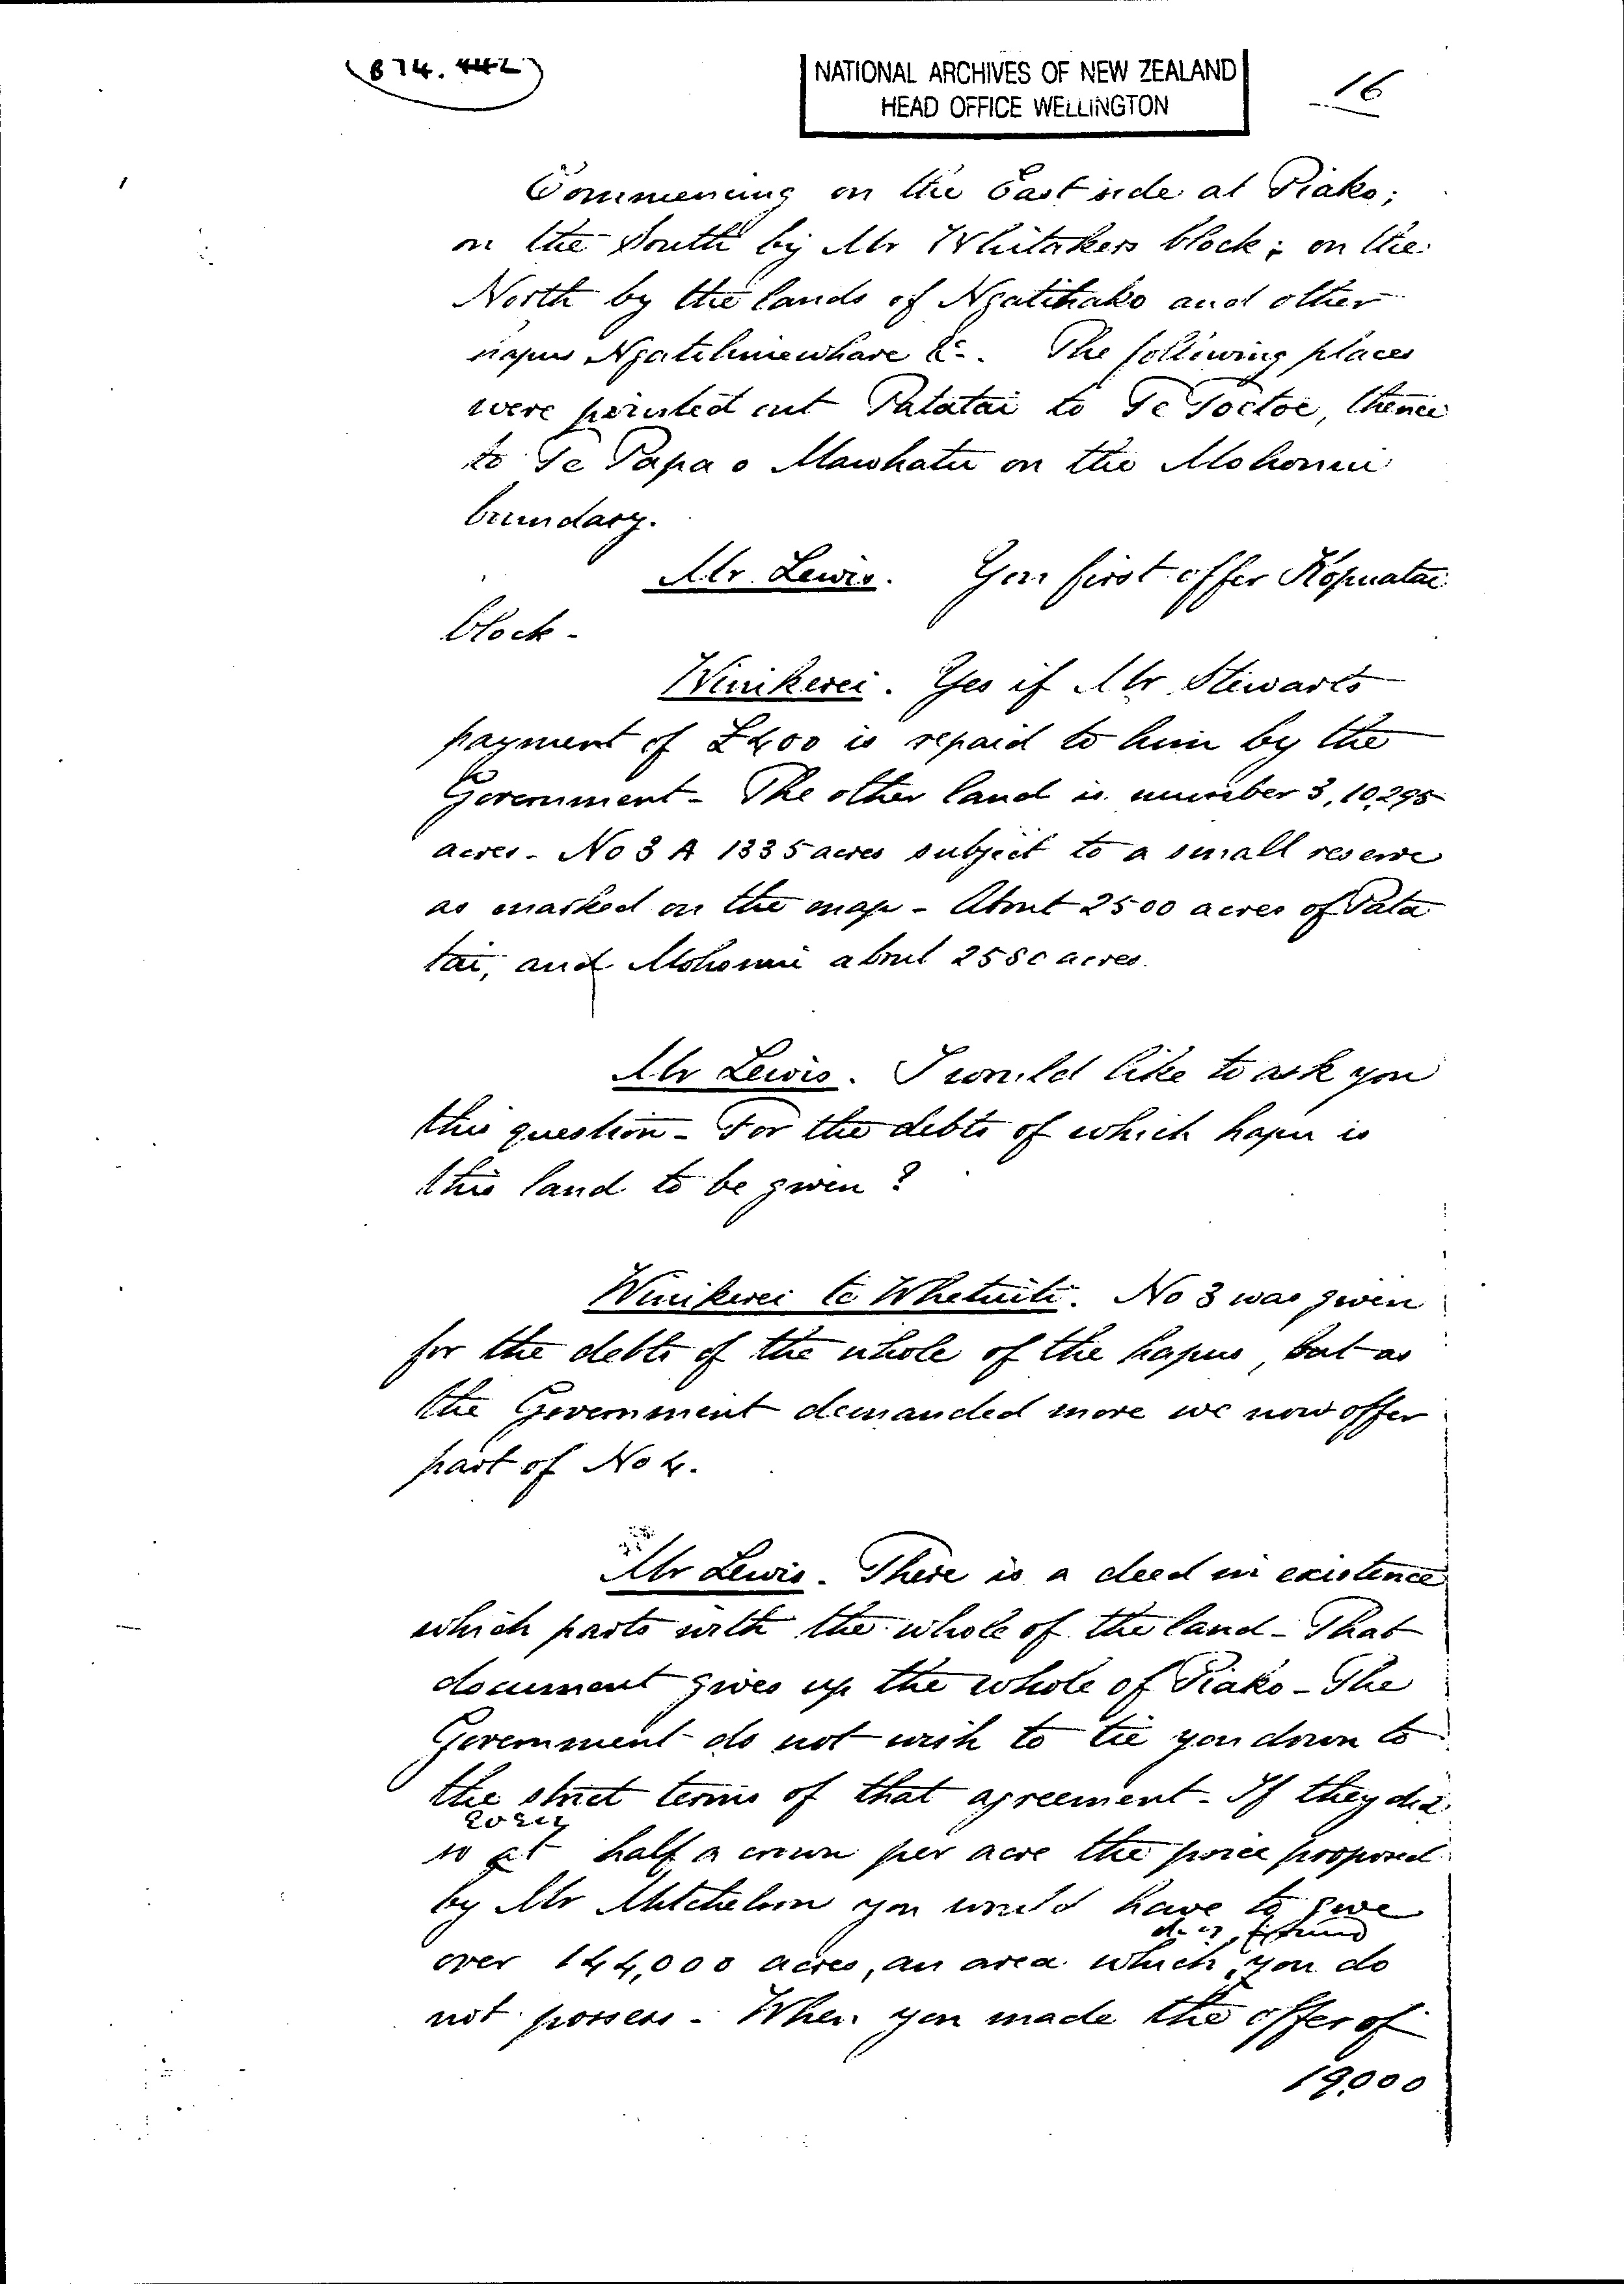 874.442
NATIONAL ARCHIVES OF NEW ZEALAND
HEAD OFFICE WELLINGTON
16
Commencing on the East side at Piako;
on the South by Mr Whitakers block; on the
North by the lands of Ngatihako and other
hapus &c. The following places
were pointed out Patatai to Te Toetoe, thence
to Te Papa o Mawhatu on the Mohonui
boundary.
Mr. Lewis. You first offer Kopuatai
block -
Winikerei. Yes if Mr Stewarts
payment of £400 is repaid to him by the
Government - The other land is number 3, 10,295
acres - No 3 A 1335 acres subject to a small reserve
as marked on the map - About 2500 acres of Pata
tai, and Mohonui about 2580 acres.
Mr Lewis. I would like to ask you
this question - For the debts of which hapu is
this land to be given ?
Winikerei te Whetuiti. No 3 was given
for the debts of the whole of the hapus, but as
the Government demanded more we now offer
part of No 4.
Mr Lewis. There is a deed in existence
which parts with the whole of the land - That
document gives up the whole of Piako - The
Government do not wish to tie you down to
the strict terms of that agreement - If they did
so at half a crown per acre the price proposed
by Mr Mitchelson you would have to give
over 144,000 acres, an area which you do
not possess - When you made the offer of
19,000